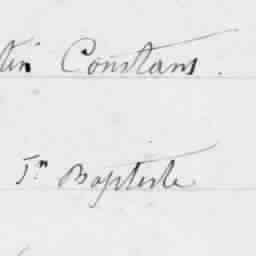 tin Constans.
Jn Baptiste